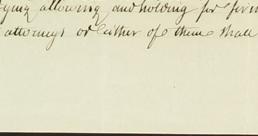 allowing and holding for firm
attorneys or either of them shall